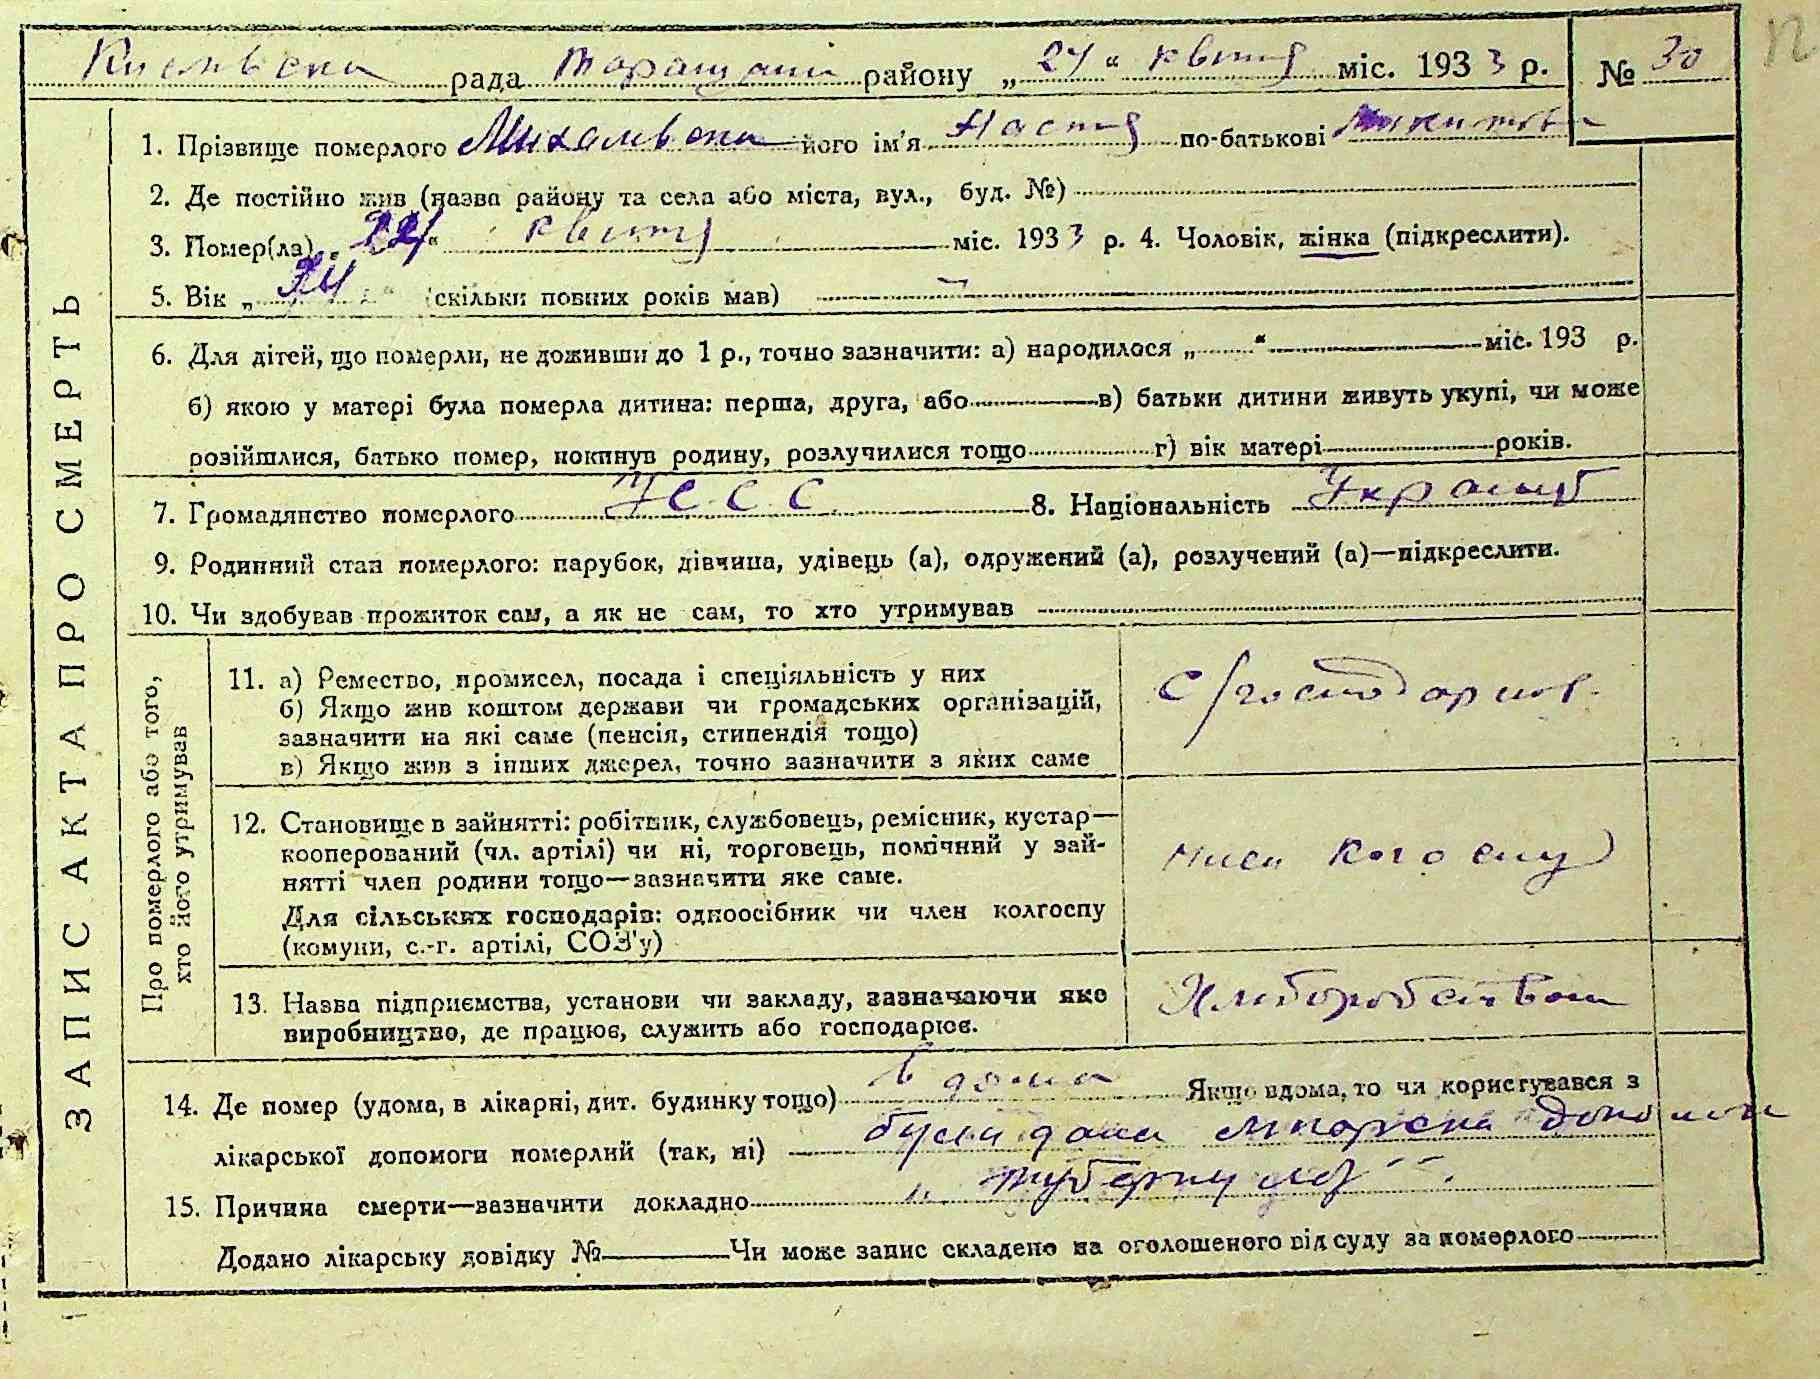 рада району „24“ квітня міс. 1933 р. № 30
1. Прізвище померлого його ім'я Настя по-батькові
2. Де постійно жив (назва району та села або міста, вул., буд. №)
3. Помер(ла) квітня міс. 1933 р. 4. Чоловік, жінка (підкреслити).
5. Вік „ “ (скільки повних років мав) —
6. Для дітей, що померли, не доживши до 1 р., точно зазначити: а) народилося „ “ міс. 193 р.
б) якою у матері була померла дитина: перша, друга, або в) батьки дитини живуть укупі, чи може
розійшлися, батько помер, покинув родину, розлучилися тощо г) вік матері років.
7. Громадянство померлого УССС 8. Національність
9. Родинний стан померлого: парубок, дівчина, удівець (а), одружений (а), розлучений (а)—підкреслити.
10. Чи здобував прожиток сам, а як не сам, то хто утримував
ЗАПИС АКТА ПРО СМЕРТЬ
Про померлого або того,
хто його утримував
11. а) Ремество, промисел, посада і спеціяльність у них
б) Якщо жив коштом держави чи громадських організацій,
зазначити на які саме (пенсія, стипендія тощо)
в) Якщо жив з інших джерел, точно зазначити з яких саме
12. Становище в зайнятті: робітник, службовець, ремісник, кустар—
кооперований (чл. артілі) чи ні, торговець, помічний у зай-
нятті член родини тощо—зазначити яке саме.
Для сільських господарів: одноосібник чи член колгоспу
(комуни, с.-г. артілі, СОЗ'у)
13. Назва підприємства, установи чи закладу, зазначаючи яке
виробництво, де працює, служить або господарює.
14. Де помер (удома, в лікарні, дит. будинку тощо) в дома Якщо вдома, то чи користувався з
лікарської допомоги померлий (так, ні) дана
15. Причина смерти—зазначити докладно „туберкульоз“.
Додано лікарську довідку № Чи може запис складено на оголошеного від суду за померлого